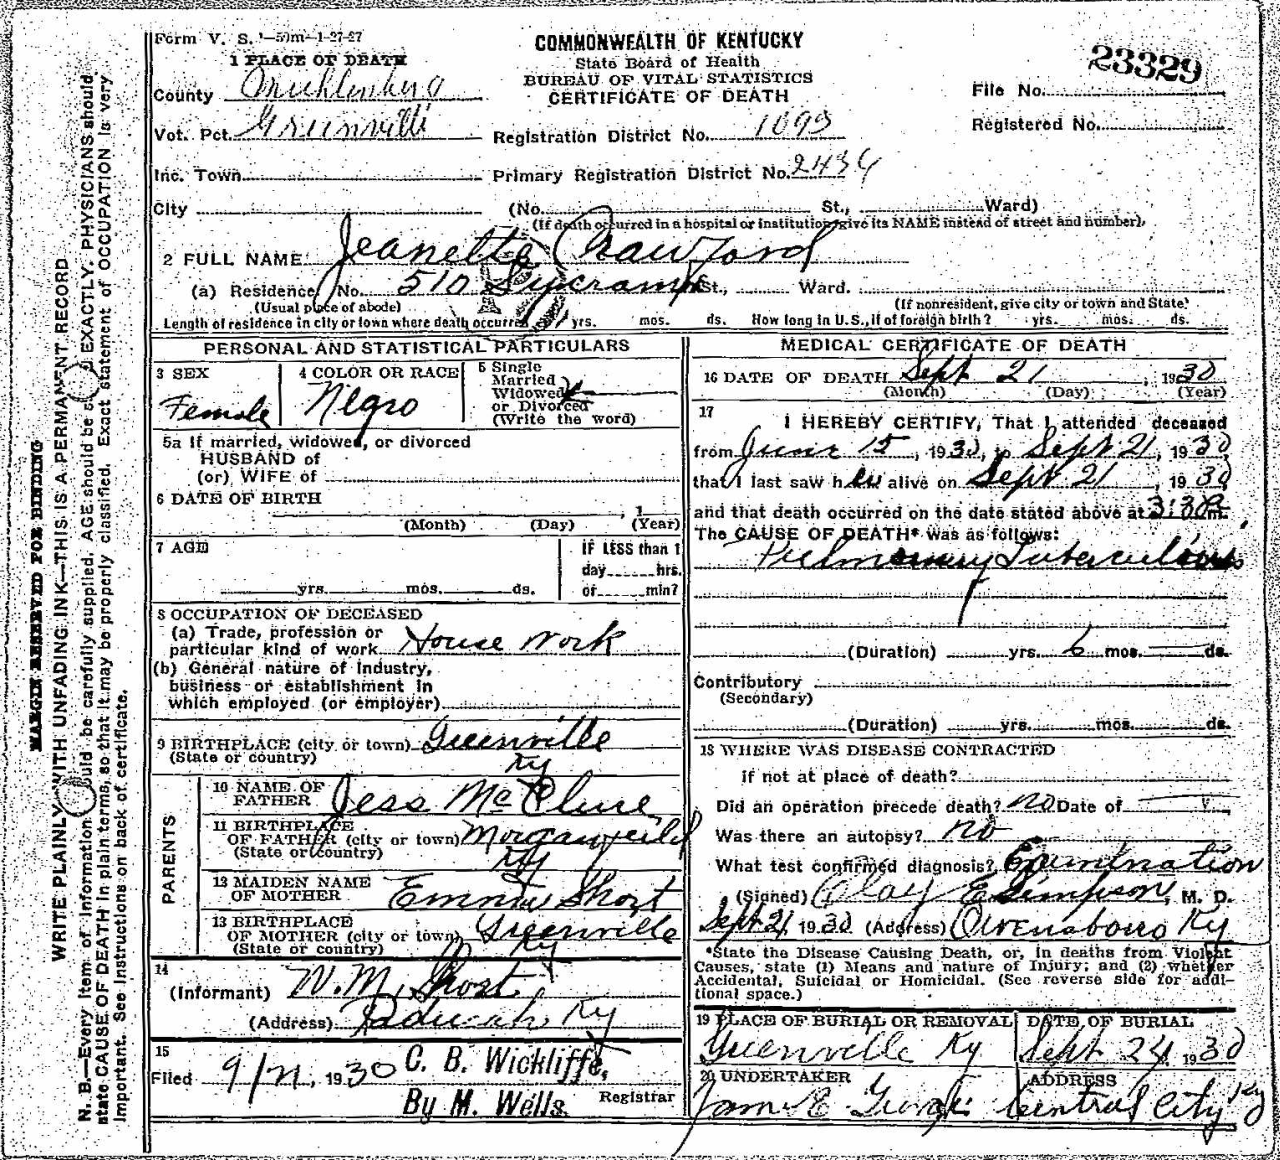 Form V. S. 1-50m-1-27-27
COMMONWEALTH OF KENTUCKY
State Board of Health
BUREAU OF VITAL STATISTICS
CERTIFICATE OF DEATH
23329
File No.
Registered No.
1 PLACE OF DEATH
County Muhlenberg
Vot. Pct. Greenville
Registration District No. 1093
Inc. Town
Primary Registration District No. 2434
City (No. St., Ward)
(If death occurred in a hospital or institution, give its NAME instead of street and number).
2 FULL NAME Jeanette Crawford
(a) Residence No. 510 St., Ward.
(Usual place of abode) (If nonresident, give city or town and State)
Length of residence in city or town where death occurred yrs. mos. ds. How long in U.S., if of foreign birth? yrs. mos. ds.
PERSONAL AND STATISTICAL PARTICULARS
3 SEX Female
4 COLOR OR RACE Negro
5 Single
Married
Widowed
or Divorced
(Write the word)
5a If married, widowed, or divorced
HUSBAND of
(or) WIFE of
6 DATE OF BIRTH
, 1
(Month) (Day) (Year)
7 AGE
yrs. mos. ds.
IF LESS than 1
day hrs.
or min?
8 OCCUPATION OF DECEASED
(a) Trade, profession or
particular kind of work House Work
(b) General nature of industry,
business or establishment in
which employed (or employer)
9 BIRTHPLACE (city or town) Greenville
(State or country) Ky
PARENTS
10 NAME OF
FATHER Jess McClure
11 BIRTHPLACE
OF FATHER (city or town) Morganfield
(State or country) Ky
12 MAIDEN NAME
OF MOTHER Emma Short
13 BIRTHPLACE
OF MOTHER (city or town) Greenville
(State or country) Ky
14
(Informant) W.M. Short
(Address) Paducah Ky
15
Filed 9/21, 1930 C. B. Wickliffe,
By M. Wells. Registrar
MEDICAL CERTIFICATE OF DEATH
16 DATE OF DEATH Sept 21, 1930
(Month) (Day) (Year)
17
I HEREBY CERTIFY, That I attended deceased
from June 15, 1930, to Sept 21, 1930,
that I last saw her alive on Sept 21, 1930
and that death occurred on the date stated above at m.
The CAUSE OF DEATH* was as follows:
Pulmonary Tuberculosis
(Duration) yrs. 6 mos. ds.
Contributory
(Secondary)
(Duration) yrs. mos. ds.
18 WHERE WAS DISEASE CONTRACTED
if not at place of death?
Did an operation precede death? no Date of
Was there an autopsy? no
What test confirmed diagnosis? Examination
(Signed) Clay E Simpson, M. D.
Sept 21, 1930 (Address) Owensboro Ky
*State the Disease Causing Death, or, in deaths from Violent
Causes, state (1) Means and nature of Injury; and (2) whether
Accidental, Suicidal or Homicidal. (See reverse side for addi-
tional space.)
19 PLACE OF BURIAL OR REMOVAL Greenville Ky
DATE OF BURIAL Sept 24 1930
20 UNDERTAKER James E.
ADDRESS Central City Ky
MARGIN RESERVED FOR BINDING
WRITE PLAINLY WITH UNFADING INK—THIS IS A PERMANENT RECORD
N. B.—Every item of information should be carefully supplied. AGE should be stated EXACTLY. PHYSICIANS should
state CAUSE OF DEATH in plain terms, so that it may be properly classified. Exact statement of OCCUPATION is very
important. See instructions on back of certificate.